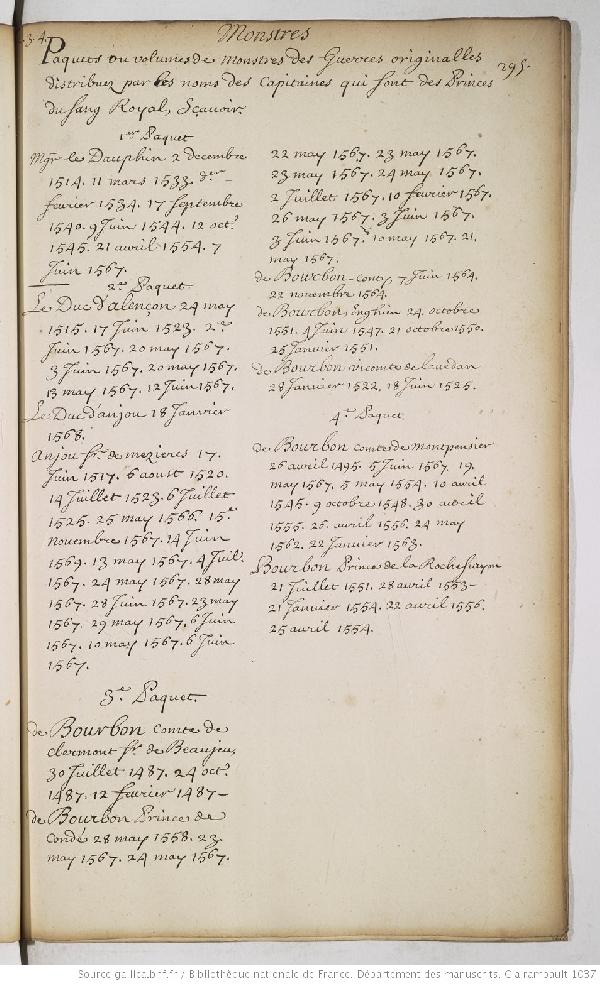 Monstres
295.
Paquets ou volumes de monstres des Guerres originalles
distribuez par les noms des Capitaines qui sont des Princes
du sang Royal, Scauoir.
1er Paquet
Mgr le Dauphin 2 decembre
1514. 11 mars 1533. der
feurier 1534. 17 septembre
1540. 9 Juin 1544. 12 octe.
1545. 21 auril 1554. 7
Juin 1567.
2e Paquet
Le Duc d'alençon 24 may
1515. 17 Juin 1523. 2e
Juin 1567. 20 may 1567.
3 Juin 1567. 20 may 1567.
13 may 1567. 12 Juin 1567.
Le Duc d'anjou 18 Januier
1568.
Anjou sr. de mezieres 17.
Juin 1517. 6 aoust 1520.
14 Juillet 1523. 6 Juillet
1525. 25 may 1566. 15e
Nouembre 1567. 14 Juin
1569. 13 may 1567. 4 Juil.
1567. 24 may 1567. 28 may
1567. 28 Juin 1567. 23 may
1567. 29 may 1567. 6 Juin
1567. 10 may 1567. 6 Juin
1567.
3e Paquet.
de Bourbon Comte de
clermont sr. de Beaujeu,
30 Juillet 1487. 24 octe.
1487. 12 feurier 1487-
de Bourbon Prince de
Condé 28 may 1558. 23.
may 1567. 24 may 1567.
22 may 1567. 23 may 1567.
23 may 1567. 24 may 1567.
2 Juillet 1567. 10 feurier 1567.
26 may 1567. 3 Juin 1567.
3 Juin 1567. 10 may 1567. 21.
may 1567.
de Bourbon-conty 7 Juin 1564.
22 nouembre 1564.
de Bourbon, enghin 24. octobre
1551. 4 Juin 1547. 21 octobre 1550.
25 Januier 1551.
de Bourbon vicomte de lauedan
28 Januier 1522. 18 Juin 1525.
4e Paquet
de Bourbon comte de montpensier
26 auril 1495. 5 Juin 1567. 19.
may 1567. 5 may 1554. 10 auril
1545. 9 octobre 1548. 30 auril
1555. 26 auril 1556. 24 may
1562. 22 Januier 1563.
Bourbon Prince de la Rochesuryon
21 Juillet 1551. 28 auril 1553-
21 Januier 1554. 22 auril 1556.
25 auril 1554.
Source gallica.bnf.fr / Bibliothèque nationale de France. Département des manuscrits. Clairambault 1037